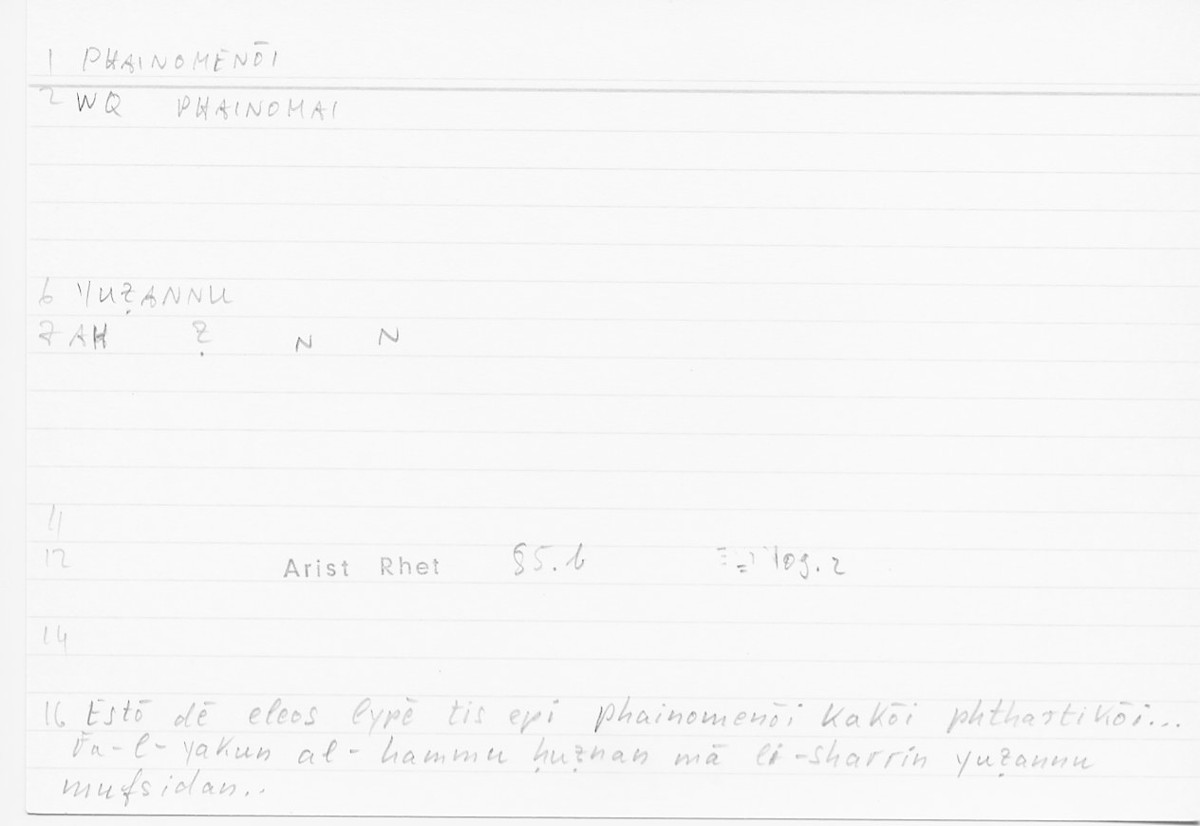 1 PHAINOMENŌI
2 WQ PHAINOMAI
6 YUẒANNU
7 AH Ẓ N N
11
12 Arist Rhet §5.6 109.2
14
16 Estō dē eleos lypē tis epi phainomenōi kakōi phthartikōi...
fa-l-yakun al-hammu ḥuẓnan mā li-sharrin yuẓannu
mufsidan..